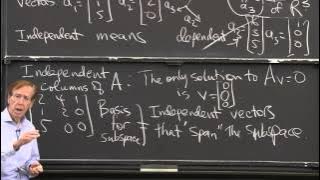 vectors a₁ = [ 5 ] a₂ = [ 2 0 ] a₃ of R⁵
Independent means dependent a₃ = [ 5 5 ] [ 1 0 ]
Independent Columns of A: The only solution to Av=0
is v= [ 0 0 0 ]
[ 2 4 1
1 2 0
5 0 0 ]
Basis for subspace } Independent vectors that "span" the subspace.